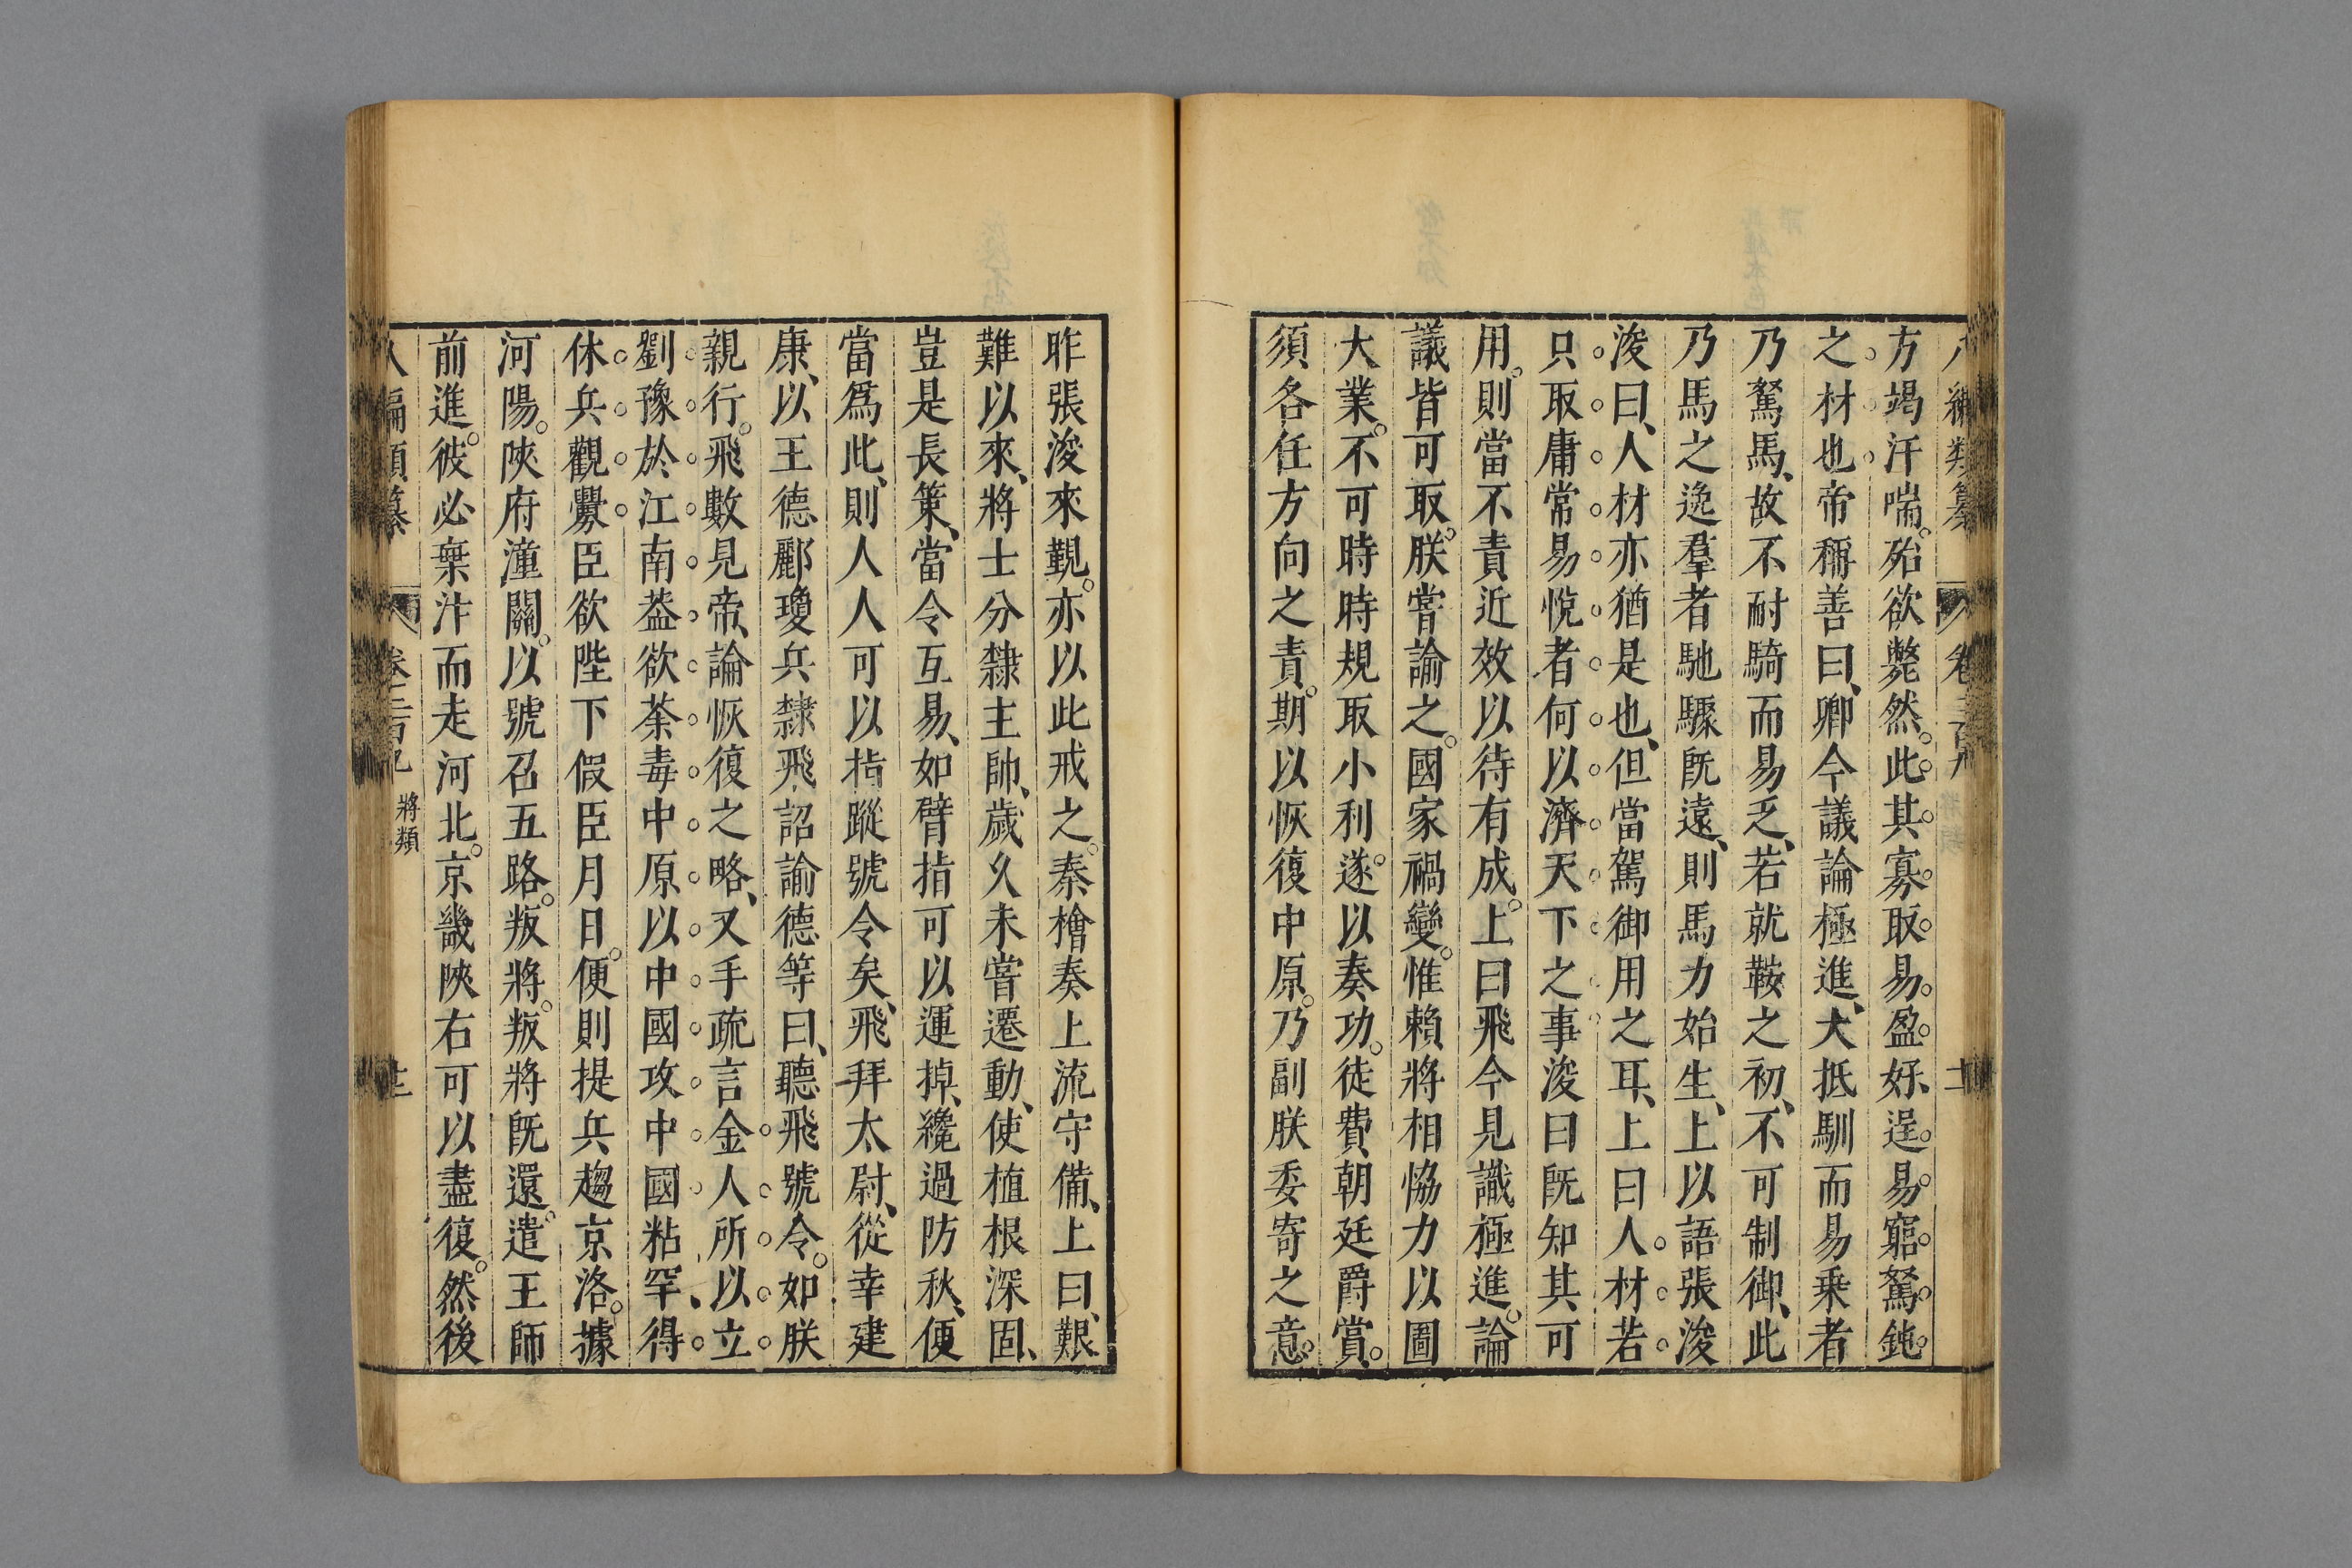 八編類纂 卷二百九 十二
方竭汗喘。殆欲斃然。此其寡取易盈好逞易窮駑鈍
之材也帝稱善曰、卿今議論極進、大抵馴而易乗者
乃駑馬、故不耐騎而易乏、若就鞍之初、不可制御、此
乃馬之逸羣者馳驟旣遠、則馬力始生、上以語張浚
浚曰、人材亦猶是也、但當駕御用之耳、上曰人材若
只取庸常易悅者何以濟天下之事浚曰旣知其可
用。則當不責近效以待有成。上曰飛今見識極進。論
議皆可取。朕嘗諭之。國家禍變。惟賴將相恊力以圖
大業。不可時時規取小利。遂以奏功。徒費朝廷爵賞。
須各任方向之責。期以恢復中原。乃副朕委寄之意。
昨張浚來覲。亦以此戒之。秦檜奏上流守備、上曰、艱
難以來、將士分隸主帥、歲久未嘗遷動、使植根深固、
豈是長策、當令互易、如臂指可以運掉、纔過防秋、便
當爲此、則人人可以指蹤號令矣、飛拜太尉、從幸建
康、以王德酈瓊兵隸飛詔諭德等曰、聽飛號令。如朕
親行。飛數見帝、論恢復之略、又手疏言金人所以立
劉豫於江南葢欲荼毒中原以中國攻中國粘罕、得
休兵觀釁臣欲陛下假臣月日。便則提兵趨京洛。據
河陽。陜府潼關。以號召五路。叛將。叛將旣還。遣王師
前進。彼必棄汴而走河北。京畿陜右可以盡復。然後
八編類纂 卷二百九 將類 十二